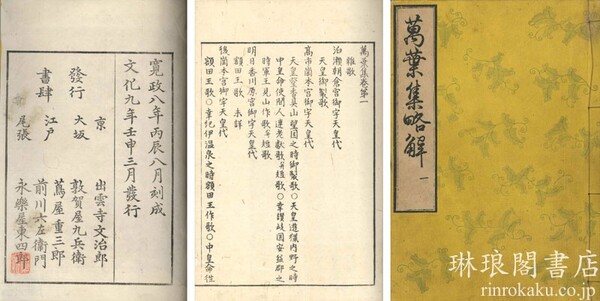 萬葉集略解 一
萬葉集卷第一
雜歌
泊瀬朝倉宮御宇天皇代
天皇御製歌
高市崗本宮御宇天皇代
天皇登香具山望國之時御製歌〇天皇遊獵内野之時
中皇命使間人連老獻歌并短歌〇幸讃岐國安益郡之
時軍王見山作歌并短歌
明日香川原宮御宇天皇代
額田王歌 未詳
後崗本宮御宇天皇代
額田王歌〇幸紀伊温泉之時額田王作歌〇中皇命往
寛政八年丙辰八月刻成
文化九年壬申三月發行
京 出雲寺文治郎
發行 大坂 敦賀屋九兵衛
蔦屋重三郎
書肆 江戸 前川六左衛門
尾張 永樂屋東四郎
琳琅閣書店
rinrokaku.co.jp